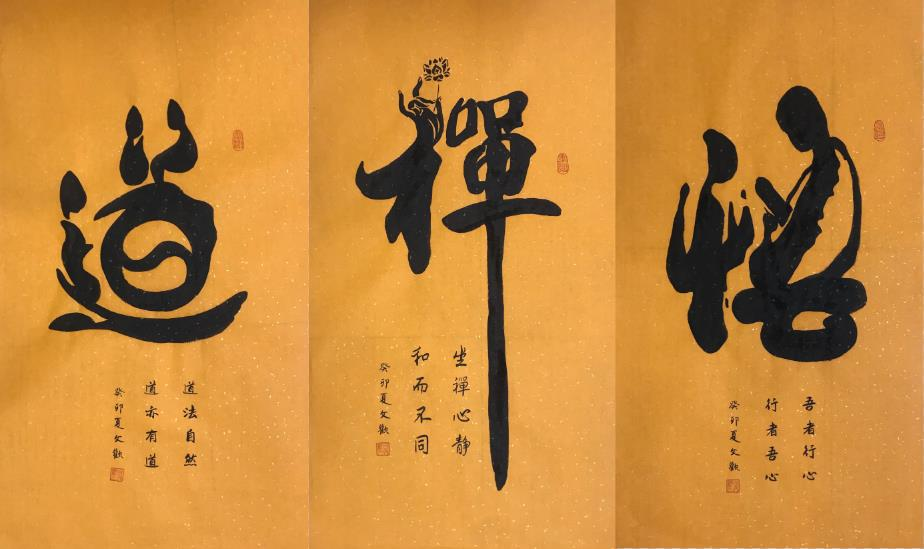 道
道法自然
道亦有道
癸卯夏文歡
禪
坐禪心靜
和而不同
癸卯夏文歡
悟
吾者行心
行者吾心
癸卯夏文歡